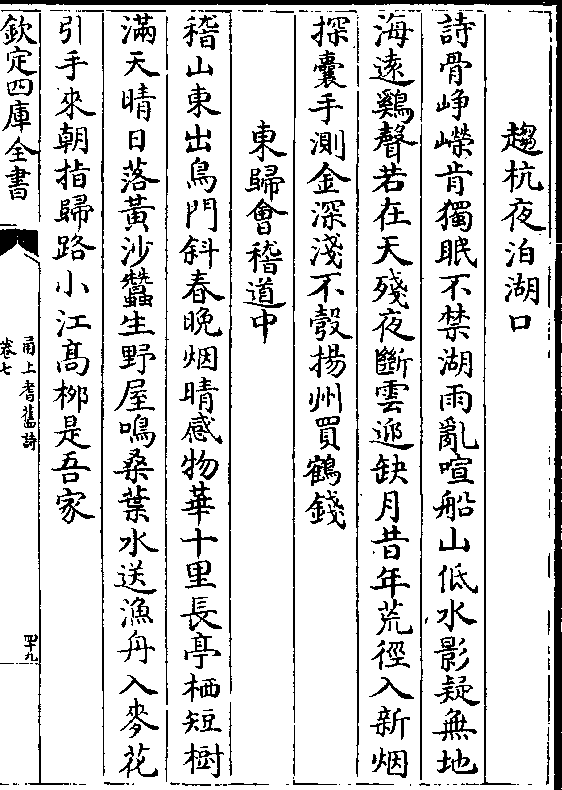 趨杭夜泊湖口
詩骨崢嶸肯獨眠不禁湖雨亂喧船山低水影疑無地
海遠鷄聲若在天殘夜斷雲迎缺月昔年荒徑入新烟
探囊手測金深淺不彀揚州買鶴錢
東歸會稽道中
稽山東出鳥門斜春晚烟晴感物華十里長亭栖短樹
滿天晴日落黃沙蠶生野屋鳴桑葉水送漁舟入麥花
引手來朝指歸路小江髙栁是吾家
欽定四庫全書
甬上耆舊詩
卷七
四十九